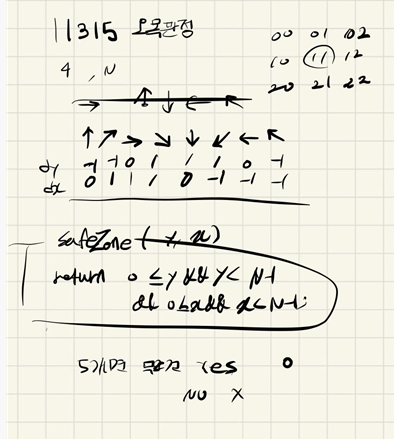 11315 오목판정
00 01 02
10 11 12
20 21 22
4 , N
→ ↑ ↓ ← ↖
↑ ↗ → ↘ ↓ ↙ ← ↖
dy -1 -1 0 1 1 1 0 -1
dx 0 1 1 1 0 -1 -1 -1
safeZone (y, x)
return 0 ≤ y && y < N-1
&& 0 ≤ x && x < N-1;
5개면 무조건 Yes O
NO X